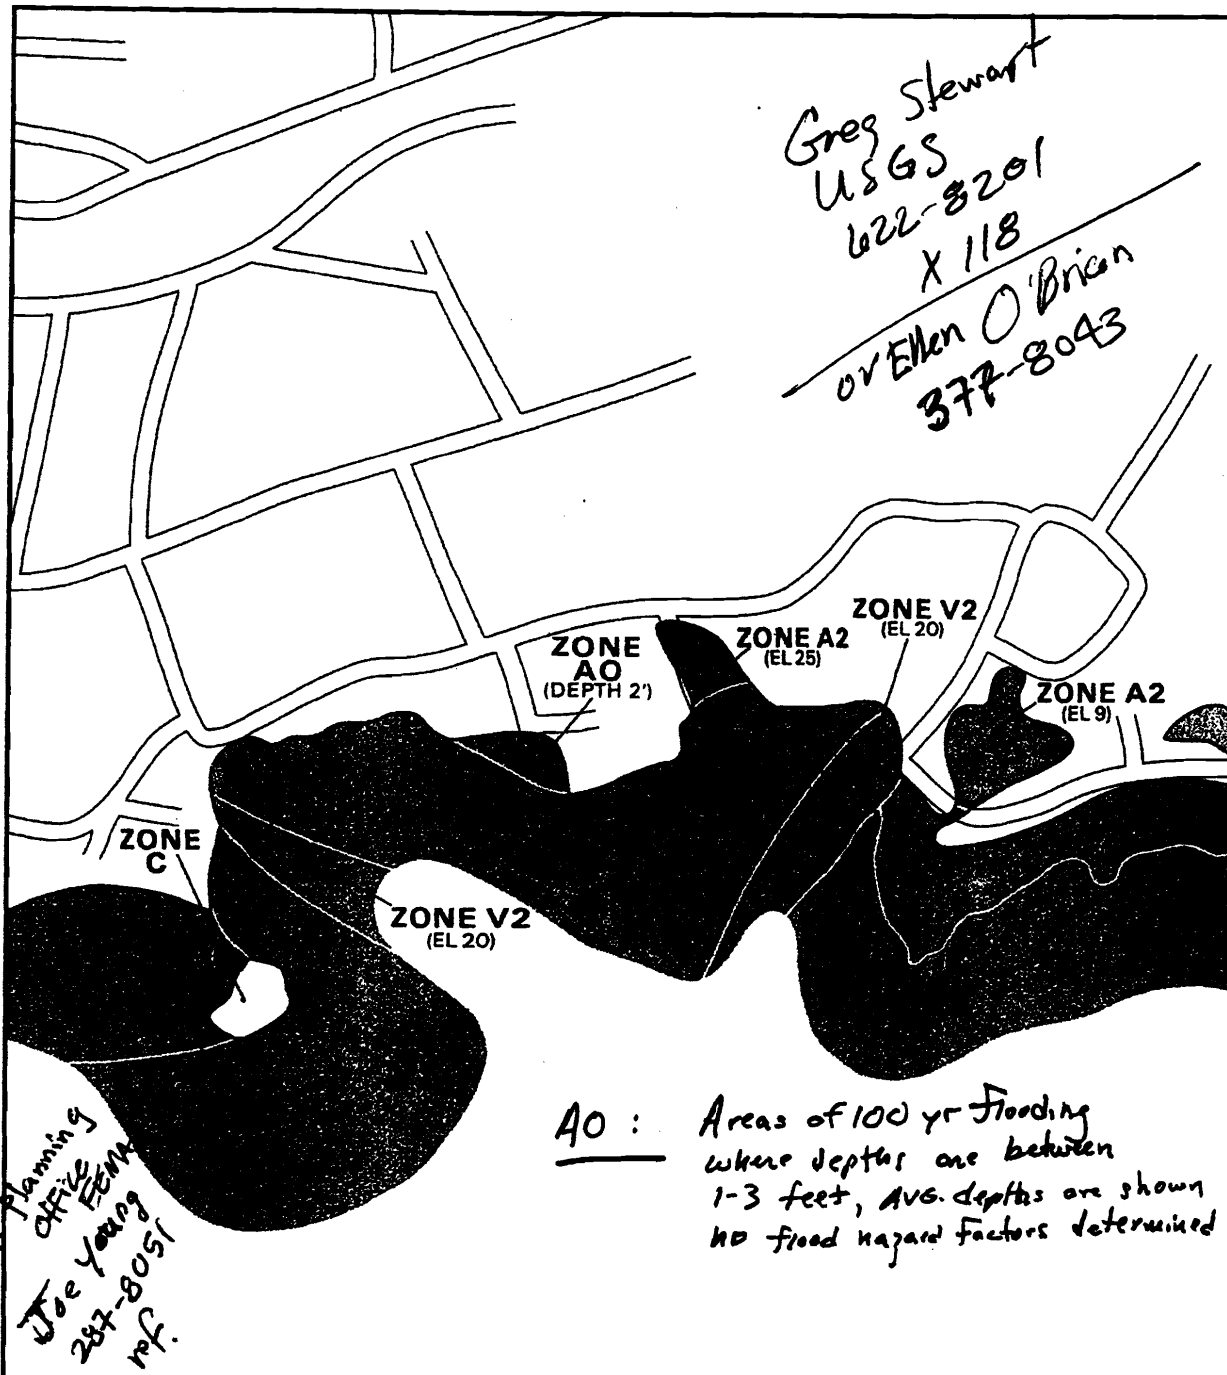 Greg Stewart
USGS
622-8201
X 118
or Ellen O'Brien
377-8043
ZONE V2
(EL 20)
ZONE
AO
(DEPTH 2')
ZONE A2
(EL 25)
ZONE A2
(EL 9)
ZONE
C
ZONE V2
(EL 20)
AO : Areas of 100 yr flooding
where depths are between
1-3 feet, AVG. depths are shown
no flood hazard factors determined
Planning
Office
FEMA
Joe Young
287-8051
ref.